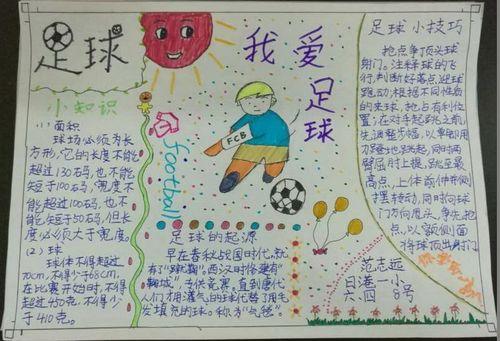 足球
小知识
(1) 面积
球场必须为长
方形,它的长度不能
超过130码,也不能
短于100码,宽度不
能超过100码,也不
能短于50码,但长
度必须大于宽度。
(2) 球
球体不得超过
70cm,不得少于68cm,
在比赛开始时,不得
超过450克,不得少
于410克。
我爱足球
FCB
football
足球的起源
早在春秋战国时代,就
有了"蹴鞠"。西汉时修建有"
鞠城",专供竞赛,直到唐代
人们才用灌气的球代替了用毛
发填充的球。称为"气毬"
足球小技巧
抢点争顶头球
射门。注释球的飞
行,判断好落点,迎球
跑动,根据不同性质
的来球,抢占有利位
置,在对手起跳之前,
先调整步幅,以单脚用
力蹬地跳起,同时两
臂屈肘上提,跳至最
高点,上体前伸并侧
摆转动,同时向球
门方向甩头,争先抢
点,以额侧面
将球顶出射门
范志远
日港一小
六、四 8号